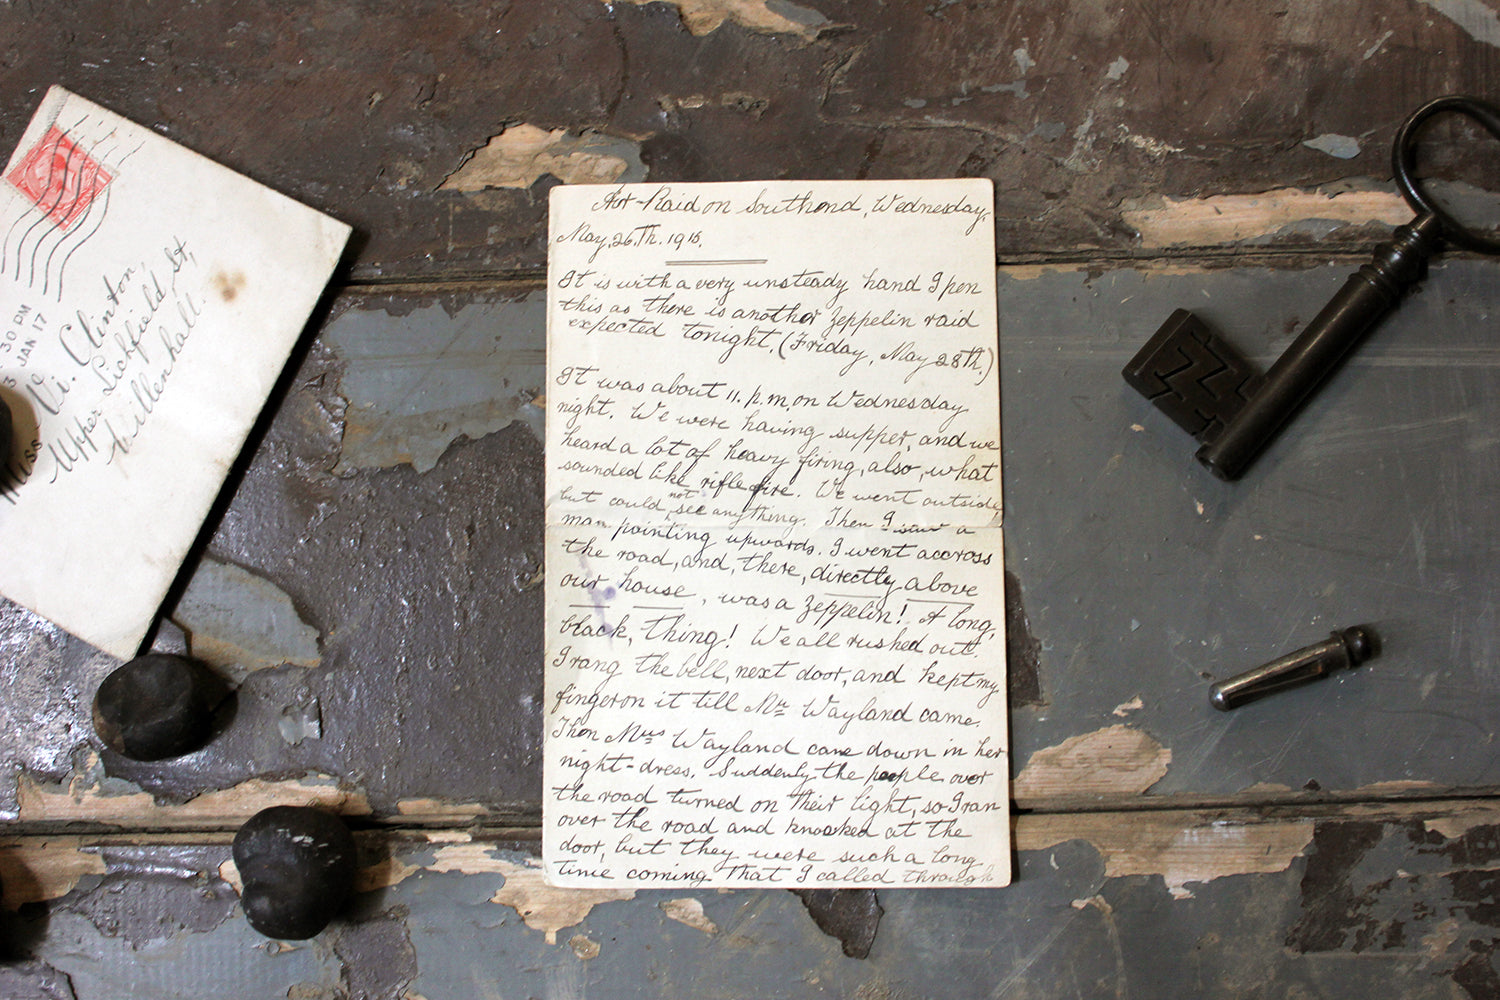 30 PM
3 JAN 17
Miss Vi. Clinton,
Upper Lichfield St,
Willenhall.
Air-Raid on Southend, Wednesday,
May, 26.Th. 1915.
It is with a very unsteady hand I pen
this as there is another Zeppelin raid
expected tonight. (Friday, May 28Th.)
It was about 11. p.m. on Wednesday
night. We were having supper, and we
heard a lot of heavy firing, also, what
sounded like rifle fire. We went outside,
but could not see anything. Then I saw a
man pointing upwards. I went accross
the road, and, there, directly above
our house, was a Zeppelin! A long,
black, thing! We all rushed out.
I rang the bell, next door, and kept my
finger on it till Mr Wayland came.
Then Mrs Wayland came down in her
night-dress. Suddenly the people over
the road turned on their light, so I ran
over the road and knocked at the
door, but they were such a long
time coming that I called through